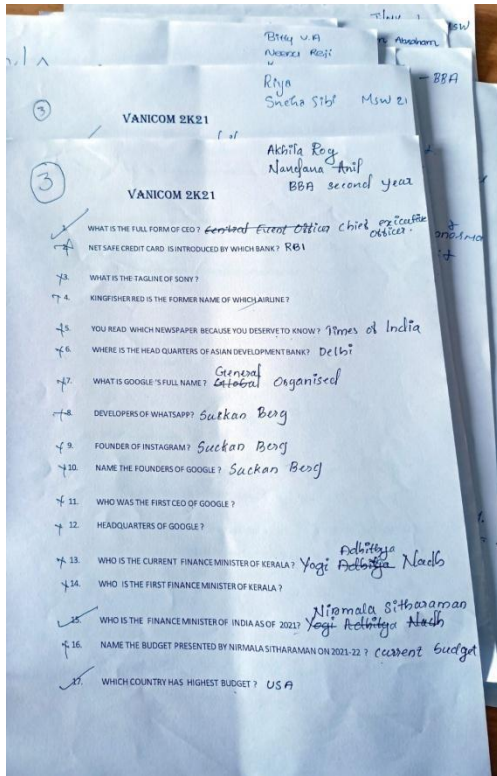 Bitty V.A
Neenu Reji
MSW
Abraham
- BBA
Riya
Sneha Sibi MSW 21
3
VANICOM 2K21
Akhila Roy
Nandana Anil
BBA second year
3
VANICOM 2K21
1. WHAT IS THE FULL FORM OF CEO ? Central Event Officer chief exicutive
officer.
2. NET SAFE CREDIT CARD IS INTRODUCED BY WHICH BANK ? RBI
3. WHAT IS THE TAGLINE OF SONY ?
4. KINGFISHER RED IS THE FORMER NAME OF WHICH AIRLINE ?
5. YOU READ WHICH NEWSPAPER BECAUSE YOU DESERVE TO KNOW ? Times of India
6. WHERE IS THE HEAD QUARTERS OF ASIAN DEVELOPMENT BANK ? Delhi
General
7. WHAT IS GOOGLE 'S FULL NAME ? Global Organised
8. DEVELOPERS OF WHATSAPP? Suckan Berg
9. FOUNDER OF INSTAGRAM ? Suckan Berg
10. NAME THE FOUNDERS OF GOOGLE ? Suckan Berg
11. WHO WAS THE FIRST CEO OF GOOGLE ?
12. HEADQUARTERS OF GOOGLE ?
Adhithya
13. WHO IS THE CURRENT FINANCE MINISTER OF KERALA ? Yogi Adhitya Nadh
14. WHO IS THE FIRST FINANCE MINISTER OF KERALA ?
Nirmala Sitharaman
15. WHO IS THE FINANCE MINISTER OF INDIA AS OF 2021? Yogi Adhitya Nadh
16. NAME THE BUDGET PRESENTED BY NIRMALA SITHARAMAN ON 2021-22 ? current budget
17. WHICH COUNTRY HAS HIGHEST BUDGET ? USA